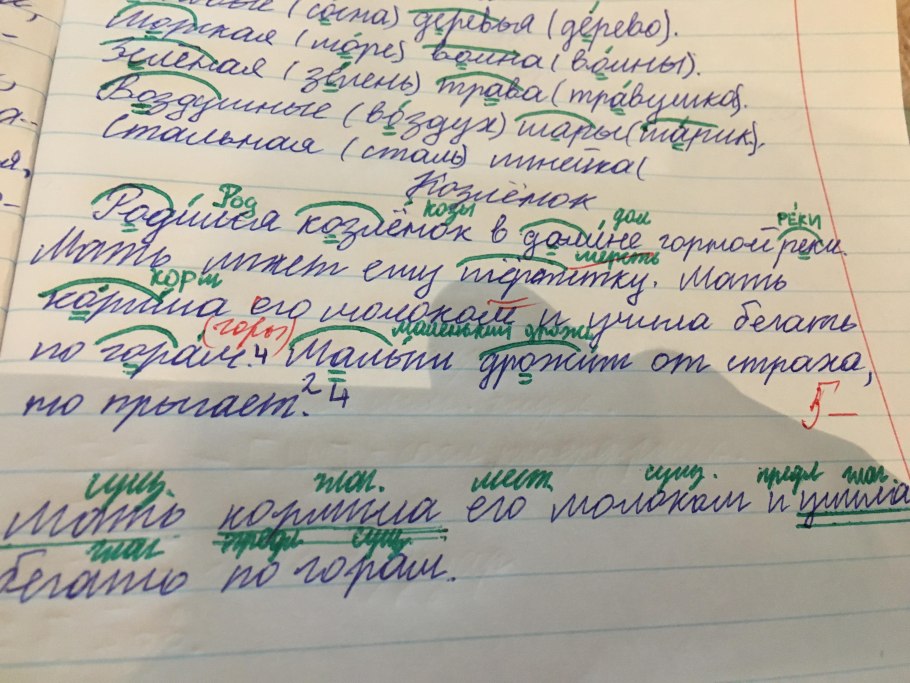 (сосна) деревья (дерево).
Морская (море) волна (волны).
Зеленая (зелень) трава (травушка).
Воздушные (воздух) шары (шарик).
Стальная (сталь) линейка (
Козлёнок
Род козы дом РЕКИ
Родился козлёнок в долине горной реки.
шерсть
Мать лижет ему шёрстку. Мать
корм
кормила его молоком и учила бегать
(горы) маленький дрожь
по горам. 4 Малыш дрожит от страха,
то прыгает. 2 4
5-
сущ. глаг. мест сущ. предл глаг.
Мать кормила его молоком и учила
глаг предл сущ.
бегать по горам.